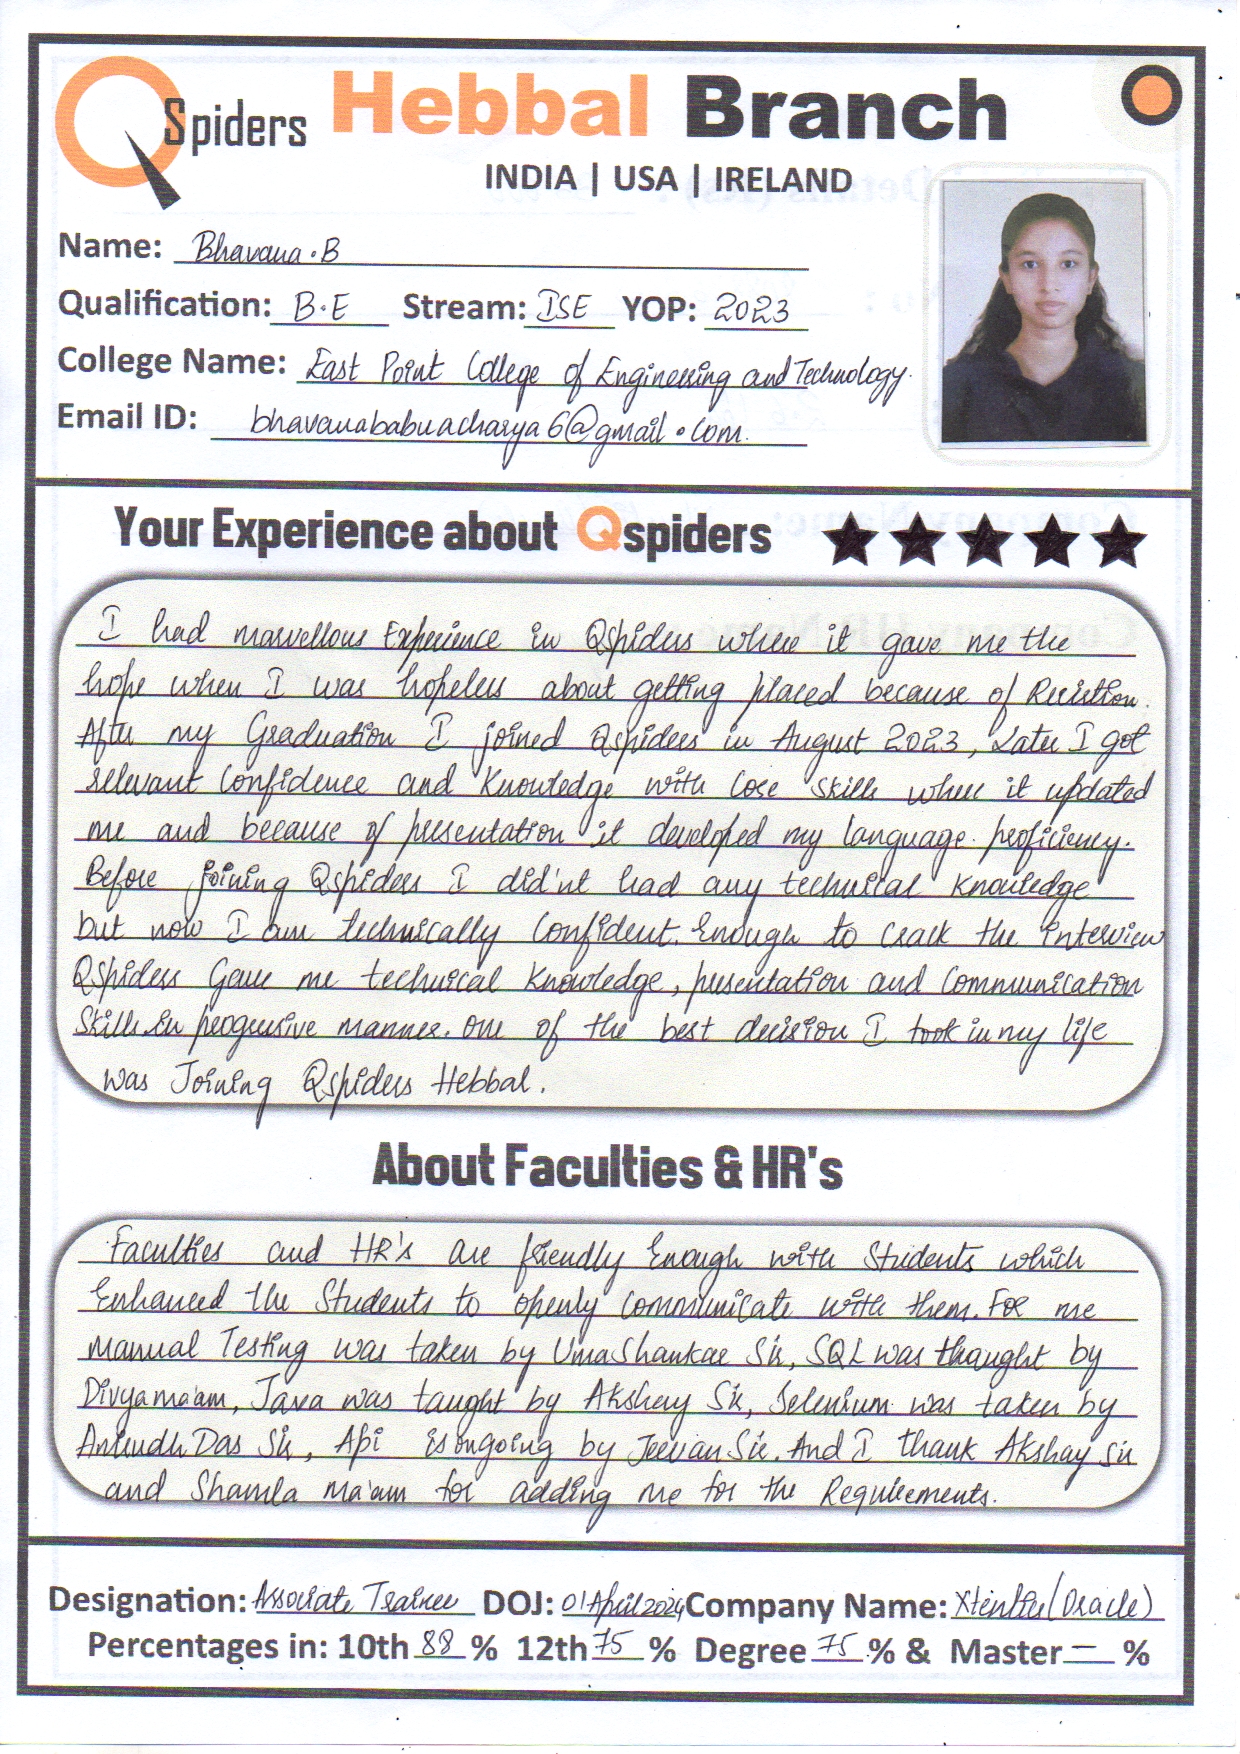 QSpiders Hebbal Branch
INDIA | USA | IRELAND
Name: Bhavana.B
Qualification: B.E Stream: ISE YOP: 2023
College Name: East Point College of Engineering and Technology.
Email ID: bhavanababuacharya6@gmail.com
Your Experience about Qspiders
I had marvellous Experience in Qspiders where it gave me the
hope when I was hopeless about getting placed because of
After my Graduation I joined Qspiders in August 2023, Later I got
relevant Confidence and Knowledge with Core Skills where it updated
me and because of presentation it developed my language proficiency.
Before joining Qspiders I did'nt had any technical knowledge
but now I am technically Confident Enough to crack the interview
QSpiders Gave me technical knowledge, presentation and Communication
Skills in progressive manner. One of the best decision I took in my life
was Joining Qspiders Hebbal.
About Faculties & HR's
Faculties and HR's are friendly Enough with Students which
Enhanced the Students to openly Communicate with them. For me
Manual Testing was taken by UmaShankar Sir, SQL was thaught by
Divya ma'am, Java was taught by Akshay Sir, Selenium was taken by
Anirudh Das Sir, Api is ongoing by Jeevan Sir. And I thank Akshay Sir
and Shamla ma'am for adding me for the Requirements.
Designation: Associate Trainee DOJ: 01 April 2024 Company Name: (Oracle)
Percentages in: 10th 88 % 12th 75 % Degree 75 % & Master — %